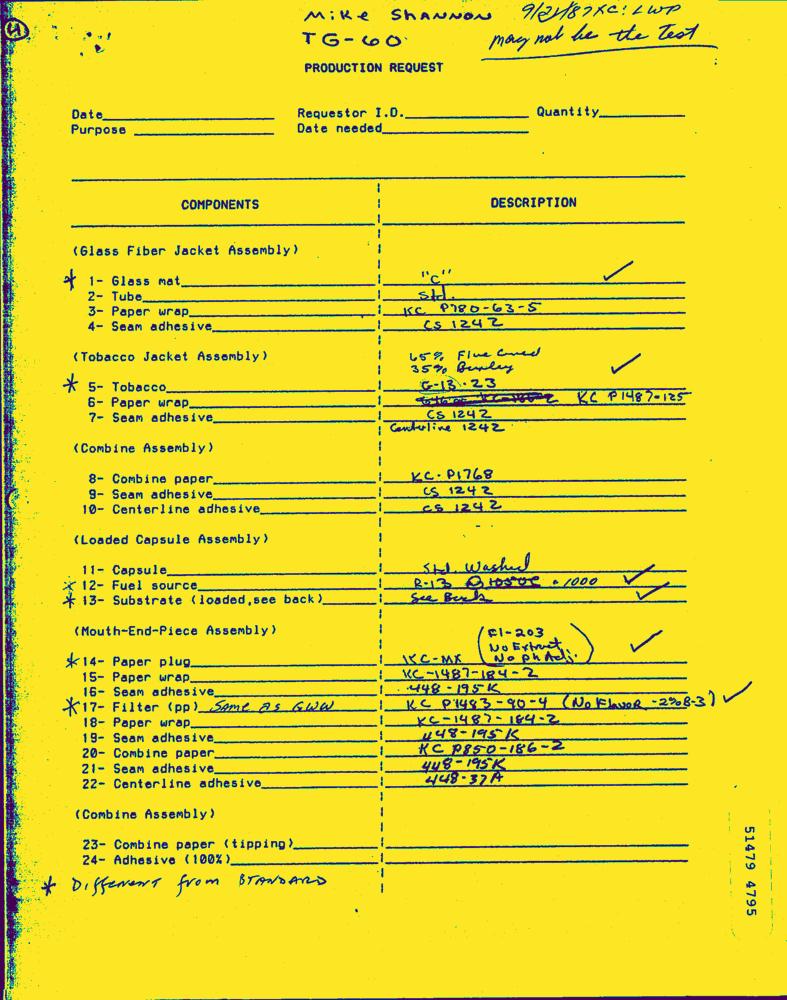 4
Mike Shannon 9/21/87 XC: LWP
TG-60 may not be the Test
PRODUCTION REQUEST
Date Requestor I.D. Quantity
Purpose Date needed
COMPONENTS DESCRIPTION
(Glass Fiber Jacket Assembly)
* 1- Glass mat "C" ✓
2- Tube Std.
3- Paper wrap KC P780-63-5
4- Seam adhesive CS 1242
(Tobacco Jacket Assembly) 65% Flue Cured
35% Burley ✓
* 5- Tobacco G-13-23
6- Paper wrap KC P1487-125
7- Seam adhesive CS 1242
Centerline 1242
(Combine Assembly)
8- Combine paper KC-P1768
9- Seam adhesive CS 1242
10- Centerline adhesive CS 1242
(Loaded Capsule Assembly)
11- Capsule Std. Washed
* 12- Fuel source R-13 @ 1050°C ✓
* 13- Substrate (loaded,see back) See Back ✓
(Mouth-End-Piece Assembly) (E1-203
No Extract
No pH Adj.) ✓
* 14- Paper plug KC-MX
15- Paper wrap KC-1487-184-2
16- Seam adhesive 448-195K
* 17- Filter (pp) Same as GWW KC P1483-90-4 (No Flavor -2808-3) ✓
18- Paper wrap KC-1487-184-2
19- Seam adhesive 448-195K
20- Combine paper KC P850-186-2
21- Seam adhesive 448-195K
22- Centerline adhesive 448-37A
(Combine Assembly)
23- Combine paper (tipping)
24- Adhesive (100%)
* Different from STANDARD
51479 4795